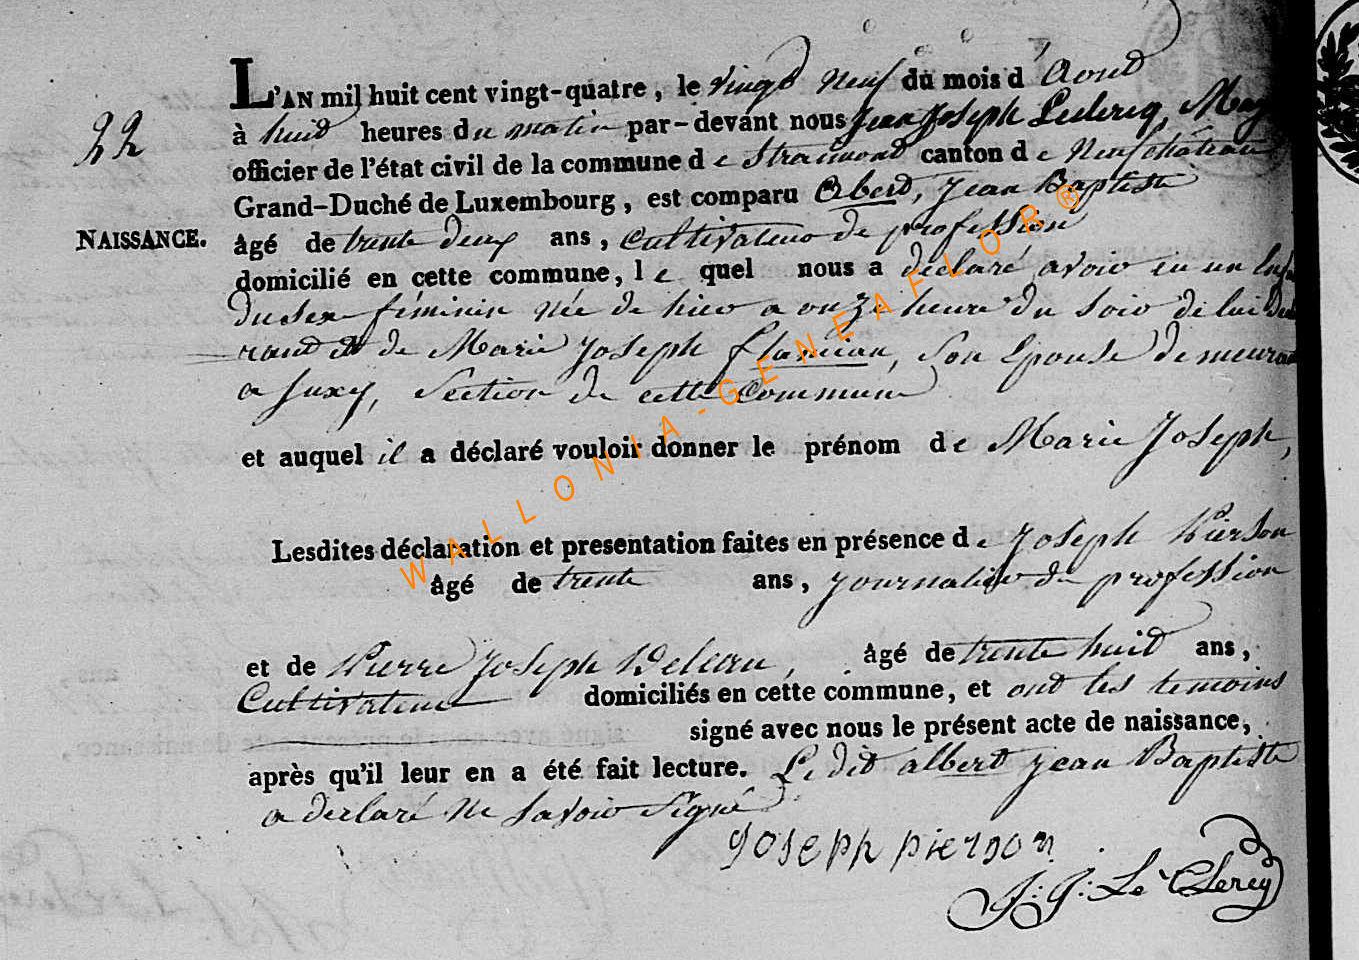 L'AN mil huit cent vingt-quatre, le vingt neuf du mois d'Aout
22
à huit heures du matin par-devant nous Jean Joseph Leclercq, May
officier de l'état civil de la commune de Straimont canton de Neufchâteau
Grand-Duché de Luxembourg, est comparu Albert, Jean Baptiste
NAISSANCE.
âgé de trente deux ans, Cultivateur de profession
domicilié en cette commune, le quel nous a déclaré avoir eu un Enfa
du sex féminin née de hier a onze heure du soir de lui
de Marie Joseph, son Epouse demeuran
a Suxy, Section de cette Commune
et auquel il a déclaré vouloir donner le prénom de Marie Joseph,
Lesdites déclaration et presentation faites en présence de Joseph Pierson
âgé de trente ans, journalier de profession
et de Pierre Joseph, âgé de trente huit ans,
Cultivateur domiciliés en cette commune, et ont les temoins
signé avec nous le présent acte de naissance,
après qu'il leur en a été fait lecture. Le dit albert jean Baptiste
a declaré ne savoir signé
joseph pierson
J: J: Le Clercq
WALLONIA-GENEAFLOR®